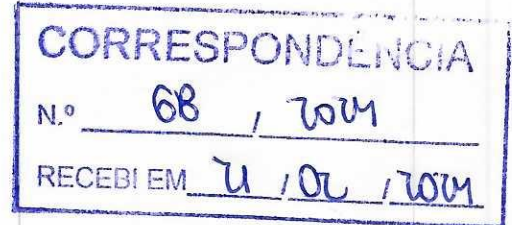 CORRESPONDÊNCIA
N.º 68 / 2024
RECEBI EM 21 / 02 / 2024